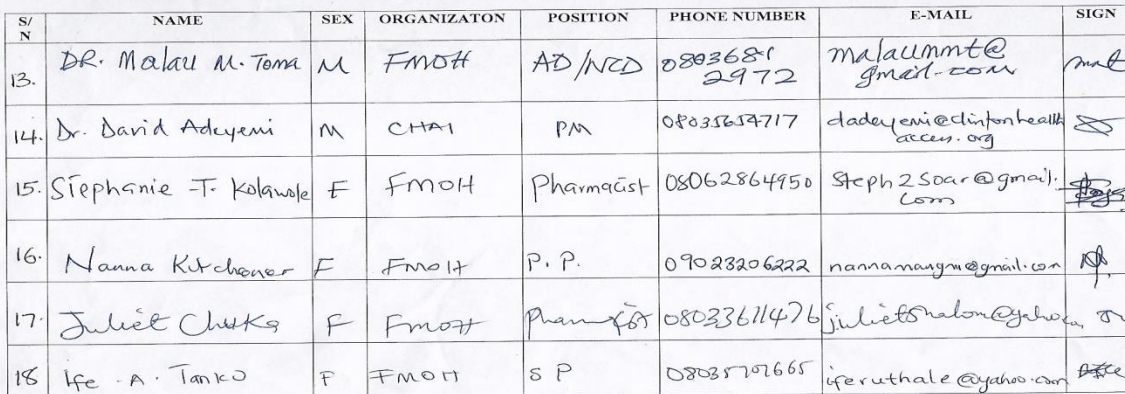 S/N NAME SEX ORGANIZATON POSITION PHONE NUMBER E-MAIL SIGN
13. DR. Malau M. Toma M FMOH AD/NCD 0803681 2972 malaummt@gmail.com
14. Dr. David Adeyemi M CHAI PM 08035654717 dadeyemi@clintonhealthaccess.org
15. Stephanie -T. Kolawole F FMOH Pharmacist 08062864950 Steph2Soar@gmail.com
16. Nanna Kitchener F FMOH P.P. 09023206222 nannanangm@gmail.com
17. Juliet Chuka F FMOH Pharmacist 08033611476
18 Ife A. Tanko F FMOH S P iferuthale@yahoo.com